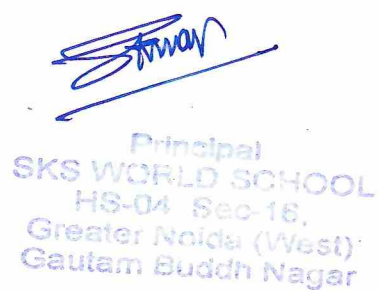 Principal
SKS WORLD SCHOOL
HS-04 Sec-16,
Greater Noida (West)
Gautam Buddh Nagar